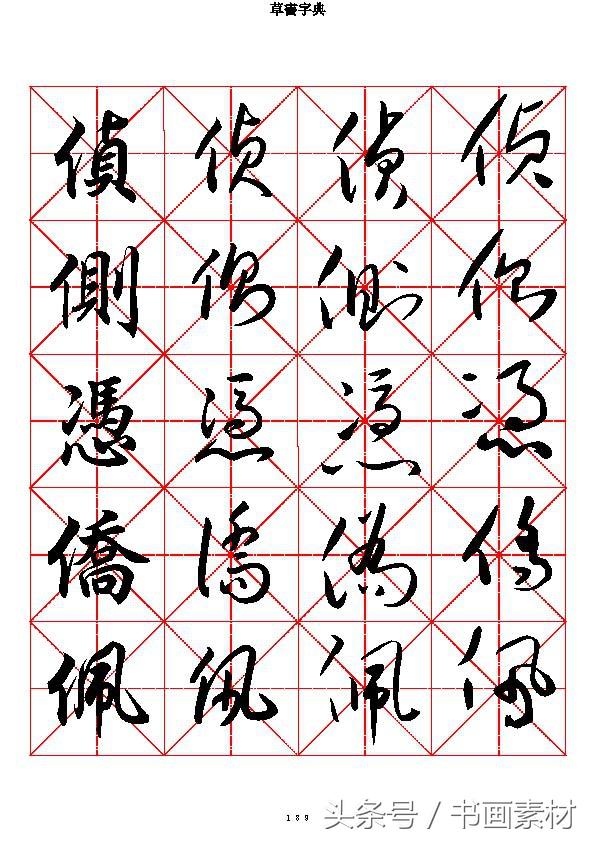 草書字典
偵 偵 偵 偵
側 側 側 側
憑 憑 憑 憑
僑 僑 僑 僑
佩 佩 佩 佩
189
头条号 / 书画素材